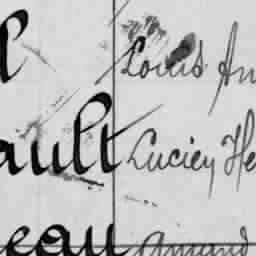 l Louis An
ault Lucien He
eau Amand